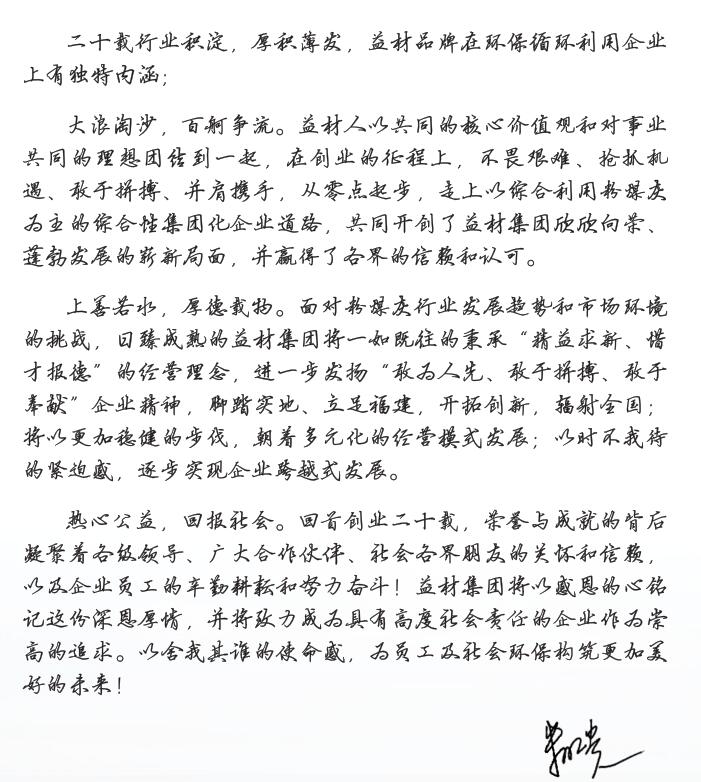 二十载行业积淀，厚积薄发，益材品牌在环保循环利用企业
上有独特内涵；
大浪淘沙，百舸争流。益材人以共同的核心价值观和对事业
共同的理想团结到一起，在创业的征程上，不畏艰难、抢抓机
遇、敢于拼搏、并肩携手，从零点起步，走上以综合利用粉煤灰
为主的综合性集团化企业道路，共同开创了益材集团欣欣向荣、
蓬勃发展的崭新局面，并赢得了各界的信赖和认可。
上善若水，厚德载物。面对粉煤灰行业发展趋势和市场环境
的挑战，日臻成熟的益材集团将一如既往的秉承“精益求新、惜
才报德”的经营理念，进一步发扬“敢为人先、敢于拼搏、敢于
奉献”企业精神，脚踏实地、立足福建，开拓创新，辐射全国；
将以更加稳健的步伐，朝着多元化的经营模式发展；以时不我待
的紧迫感，逐步实现企业跨越式发展。
热心公益，回报社会。回首创业二十载，荣誉与成就的背后
凝聚着各级领导、广大合作伙伴、社会各界朋友的关怀和信赖，
以及企业员工的辛勤耕耘和努力奋斗！益材集团将以感恩的心铭
记这份深恩厚情，并将致力成为具有高度社会责任的企业作为崇
高的追求。以舍我其谁的使命感，为员工及社会环保构筑更加美
好的未来！